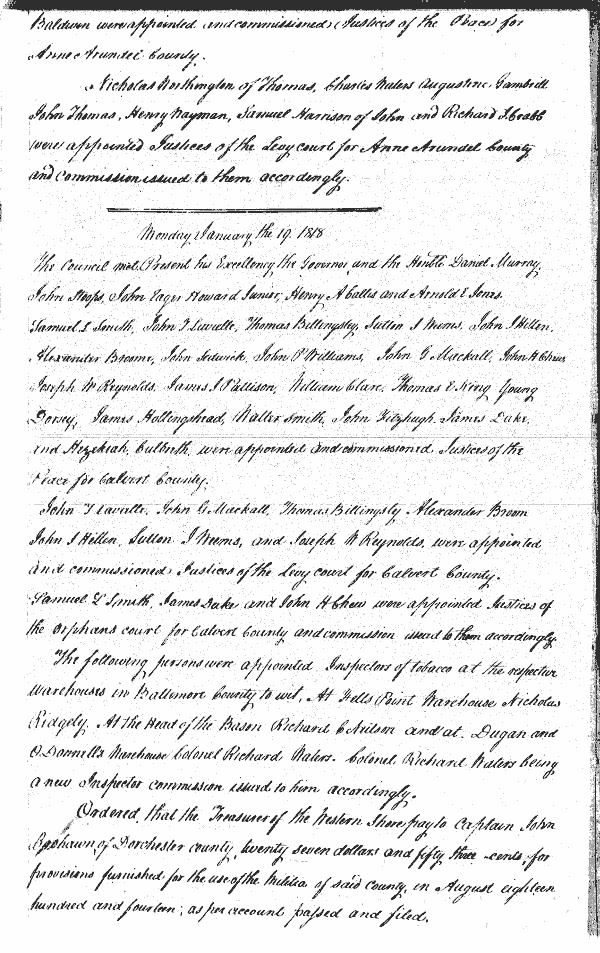 Baldwin were appointed and commissioned Justices of the Peace for
Anne Arundel County.
Nicholas Worthington of Thomas, Charles Waters Augustine Gambrill
John Thomas, Henry Wayman, Samuel Harrison of John and Richard
were appointed Justices of the Levy court for Anne Arundel County
and commission issued to them accordingly.
Monday January the 19 1818
The Council met. Present his Excellency the Governor, and the Honble Daniel Murray,
John Stoops, John Eager Howard Junior, Henry A Callis and Arnold E Jones.
Samuel L Smith, John T Laveille, Thomas Billingsly, Sutton I Weems, John I Hellen,
Alexander Broome, John Sedwick, John P Williams, John G Mackall, John H Chew
Joseph W Reynolds, James I Pattison, William Clare, Thomas E King Young
Dorsey, James Hollingshead, Walter Smith, John Fitzhugh, James Duke,
and Hezekiah Culbreth, were appointed and commissioned Justices of the
Peace for Calvert County.
John T Laveille, John G Mackall, Thomas Billingsly Alexander Broom
John I Hellen, Sutton I Weems, and Joseph W Reynolds, were appointed
and commissioned Justices of the Levy court for Calvert County.
Samuel L Smith, James Duke and John H Chew were appointed Justices of
the orphans court for Calvert County and commission issued to them accordingly
The following persons were appointed Inspectors of tobacco at the respective
warehouses in Baltimore County to wit, At Fells Point Warehouse Nicholas
Ridgely. At the Head of the Bason Richard and at Dugan and
O.Donnells Warehouse Colonel Richard Waters. Colonel Richard Waters being
a new Inspector commission issued to him accordingly.
Ordered, that the Treasurer of the Western Shore pay to Captain John
of Dorchester county, twenty seven dollars and fifty three cents for
provisions furnished for the use of the Militia of said county, in August eighteen
hundred and fourteen, as per account passed and filed.